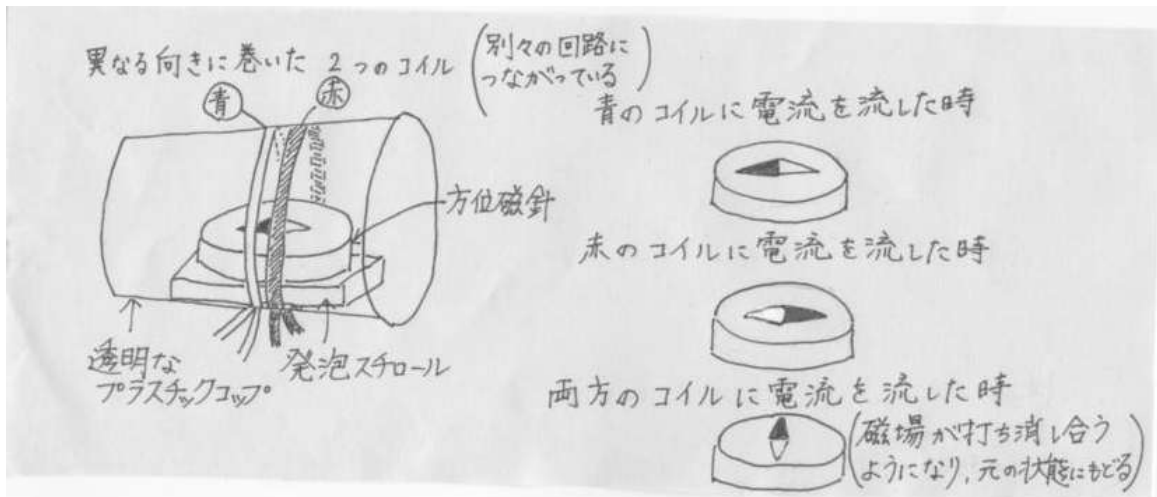 異なる向きに巻いた 2つのコイル
(別々の回路に
つながっている)
青
赤
方位磁針
透明な
プラスチックコップ
発泡スチロール
青のコイルに電流を流した時
赤のコイルに電流を流した時
両方のコイルに電流を流した時
(磁場が打ち消し合う
ようになり、元の状態にもどる)